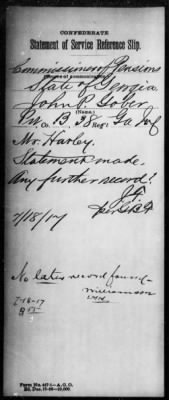 CONFEDERATE
Statement of Service Reference Slip.
Commissioner of Pensions
(Source of communication.)
State of Georgia
John P. Gober
(Name.)
Co. B 38 Reg't Ga Inf
Mr. Harley.
Statement made.
Any further record?
7/18/17
No later record found—
Williamson
7-18-17
Form No. 447-1—A. G. O.